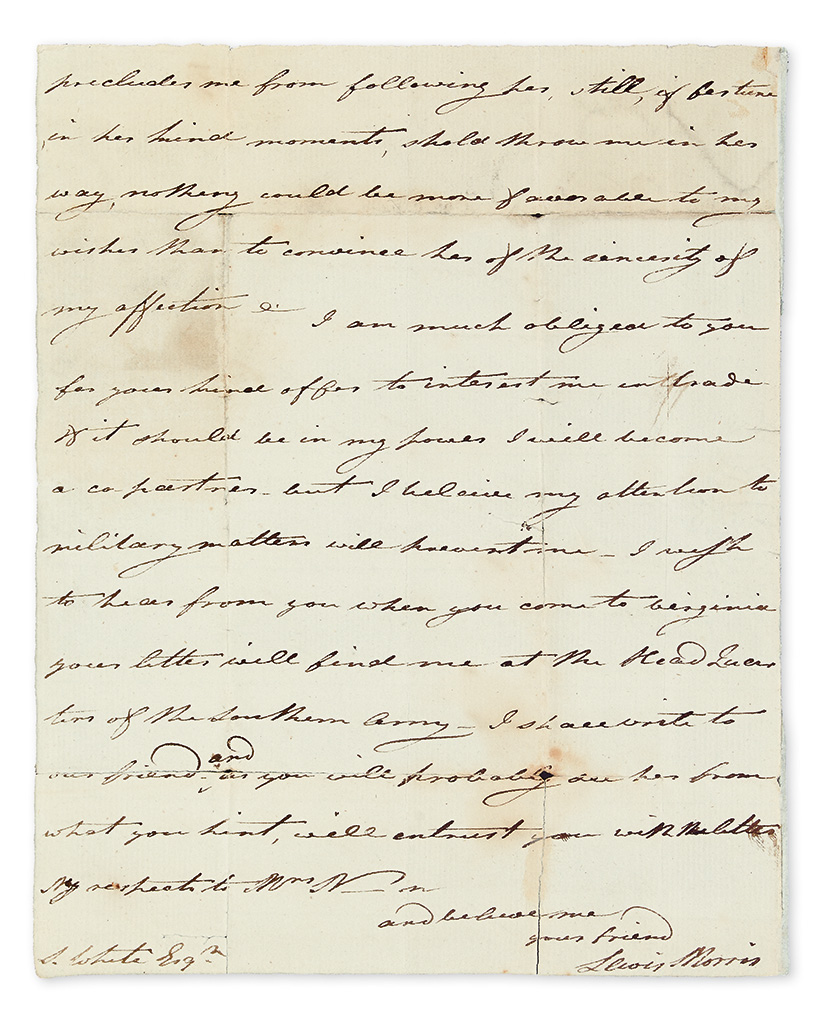 precludes me from following her, still, if fortune
in her kind moments, shold throw me in her
way, nothing could be more favorable to my
wishes than to convince her of the sincerity of
my affection &c I am much obliged to you
for your kind offer to interest me in trade
If it should be in my power I will become
a copartner - but I beleive my attention to
military matters will prevent me - I wish
to hear from you when you come to Virginia
your letter will find me at the Head Quar
ters of the Southern Army - I shall write to
our friend and as you will probably see her from
what you hint, will entrust you with the letter
My respects to Mrs N—n
and believe me
your friend
Lewis Morris
S. White Esqr